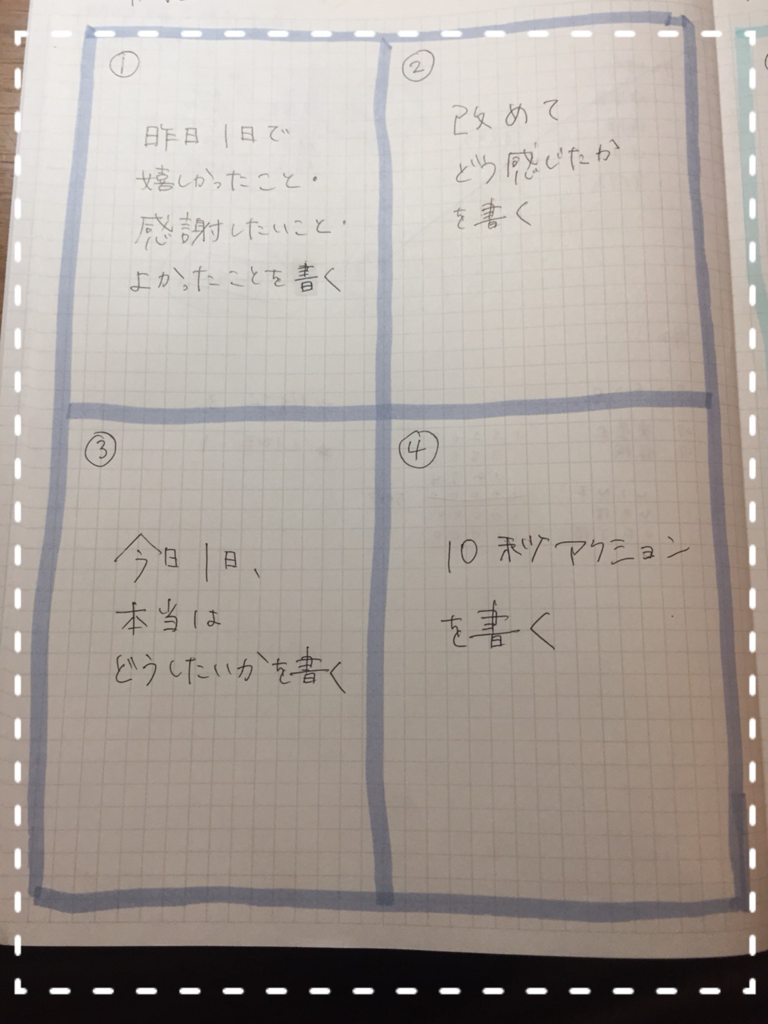 ①
昨日1日で
嬉しかったこと・
感謝したいこと・
よかったことを書く
②
改めて
どう感じたか
を書く
③
今日1日、
本当は
どうしたいかを書く
④
10秒アクション
を書く